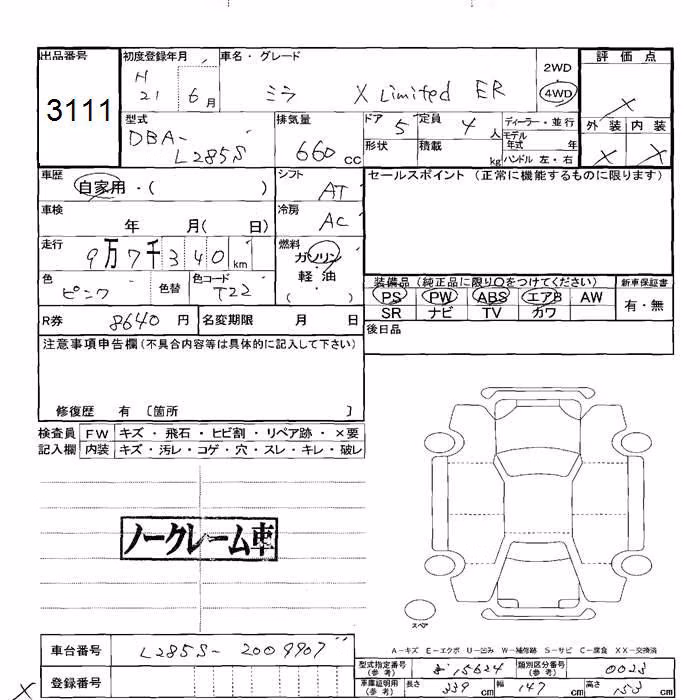 出品番号 初度登録年月 車名・グレード 評価点
3111 H 21 6月 ミラ X Limited ER 2WD 4WD ×
外装 内装
× ×
型式 排気量 ドア 定員 ディーラー・並行
DBA- L285S 660cc 5 4人 モデル年式 年
形状 積載 kg ハンドル 左・右
車歴 自家用・( ) シフト AT セールスポイント (正常に機能するものに限ります)
車検 年 月( 日) 冷房 AC
走行 9万7千340km 燃料 ガソリン・軽油・( )
色 ピンク 色替 色コード T22
装備品 (純正品に限り〇をつけてください) 新車保証書
PS PW ABS エアB AW 有・無
SR ナビ TV カワ
R券 8640円 名変期限 月 日 後日品
注意事項申告欄 (不具合内容等は具体的に記入して下さい)
修復歴 有 〔箇所 〕
検査員 FW キズ・飛石・ヒビ割・リペア跡・×要
記入欄 内装 キズ・汚レ・コゲ・穴・スレ・キレ・破レ
ノークレーム車
スペア
A-キズ E-エクボ U-凹み W-補修跡 S-サビ C-腐食 XX-交換済
車台番号 L285S-2009907
型式指定番号(参考) 15624 類別区分番号(参考) 0023
登録番号 車庫証明用(参考) 長さ 339cm 幅 147cm 高さ 153cm
×